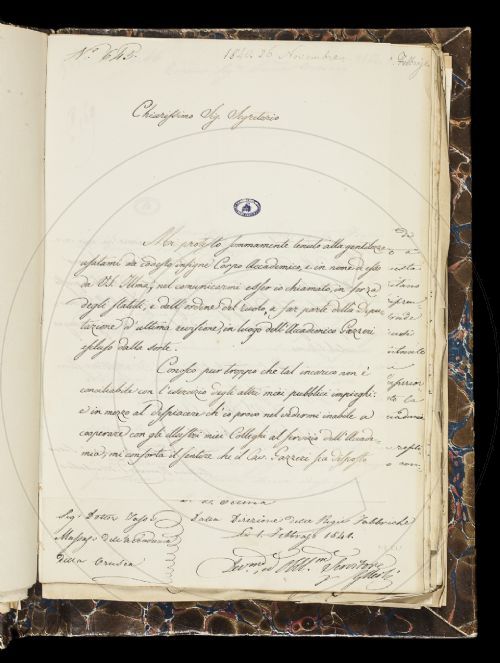 N.° 645.
1840. 26 Novembre
Chiarissimo Sig. Segretario
Mi protesto sommamente tenuto alla gentilezza
usatami da codesto insigne Corpo Accademico, e in nome di esso
da V.S. Illma, nel comunicarmi esser io chiamato, in forza
degli Statuti, e dell'ordine del ruolo, a far parte della Depu-
tazione d'ultima revisione, in luogo dell'Accademico Gazzeri
escluso dalla sorte.
Conosco pur troppo che tal incarico non è
conciliabile con l'esercizio degli altri miei pubblici impieghi:
e in mezzo al dispiacere ch'io provo nel vedermi inabile a
cooperare con gli illustri miei Colleghi al servizio dell'Acade-
mia, mi conforta il sentire che il Cav. Gazzeri sia disposto
Sig. Dottor
Dalla Direzione delle Regie Fabbriche
dell'Accademia
Li 1. Febbraio 1841.
della Crusca
Dev.mo ed Obbl.mo Servitore